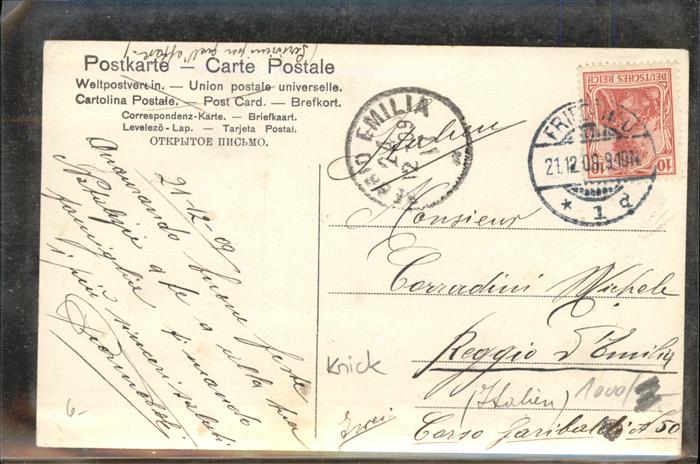 Postkarte – Carte Postale
Weltpostverein. — Union postale universelle.
Cartolina Postale. — Post Card. — Brefkort.
Correspondenz-Karte. — Briefkaart.
Levelező-Lap. — Tarjeta Postal.
ОТКРЫТОЕ ПИСЬМО.
21-12-08
buone feste
a te e alla tua
famiglia
i più sinceri saluti
EMILIA
DEUTSCHES REICH
10
21.12.08.8-9N
* 1 d
Italien
Monsieur
Corradini Michele
Reggio d'Emilia
(Italien)
Corso Garibaldi N 50
Knick
1000/
6-